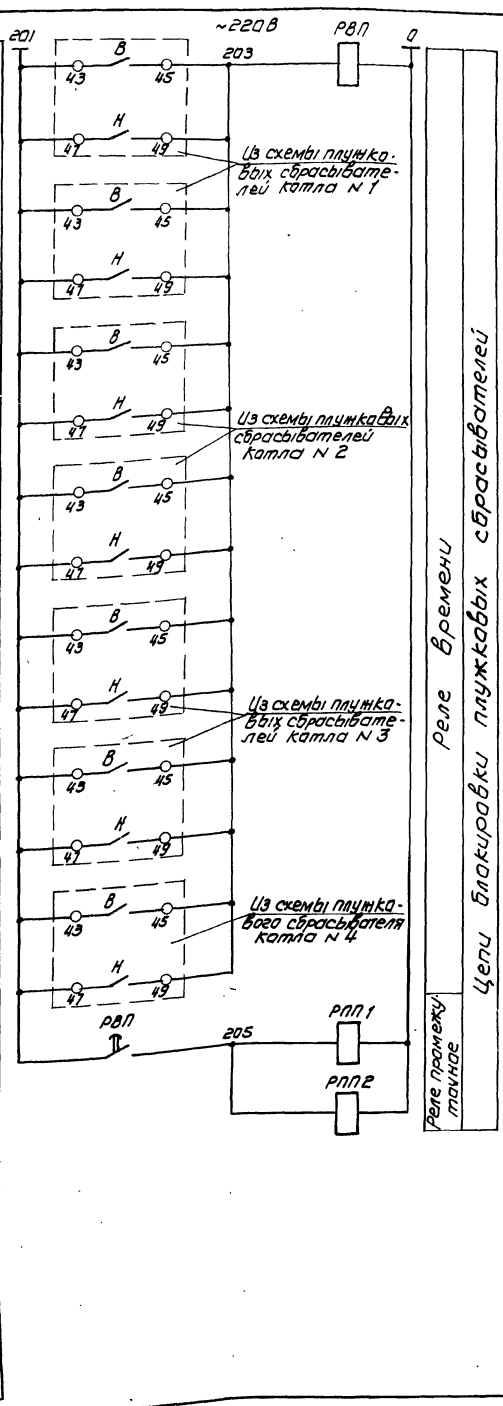 201
~220В
203
РВП
0
В
43
45
Н
47
49
Из схемы плужко-
вых сбрасывате-
лей котла N 1
В
43
45
Н
47
49
В
43
45
Н
47
49
Из схемы плужковых
сбрасывателей
котла N 2
В
43
45
Н
47
49
В
43
45
Н
47
49
Из схемы плужко-
вых сбрасывате-
лей котла N 3
В
43
45
Н
47
49
В
43
45
Из схемы плужко-
вого сбрасывателя
котла N 4
Н
47
49
РВП
205
РПП1
РПП2
Реле времени
Реле промежу-
точное
Цепи блокировки плужковых сбрасывателей